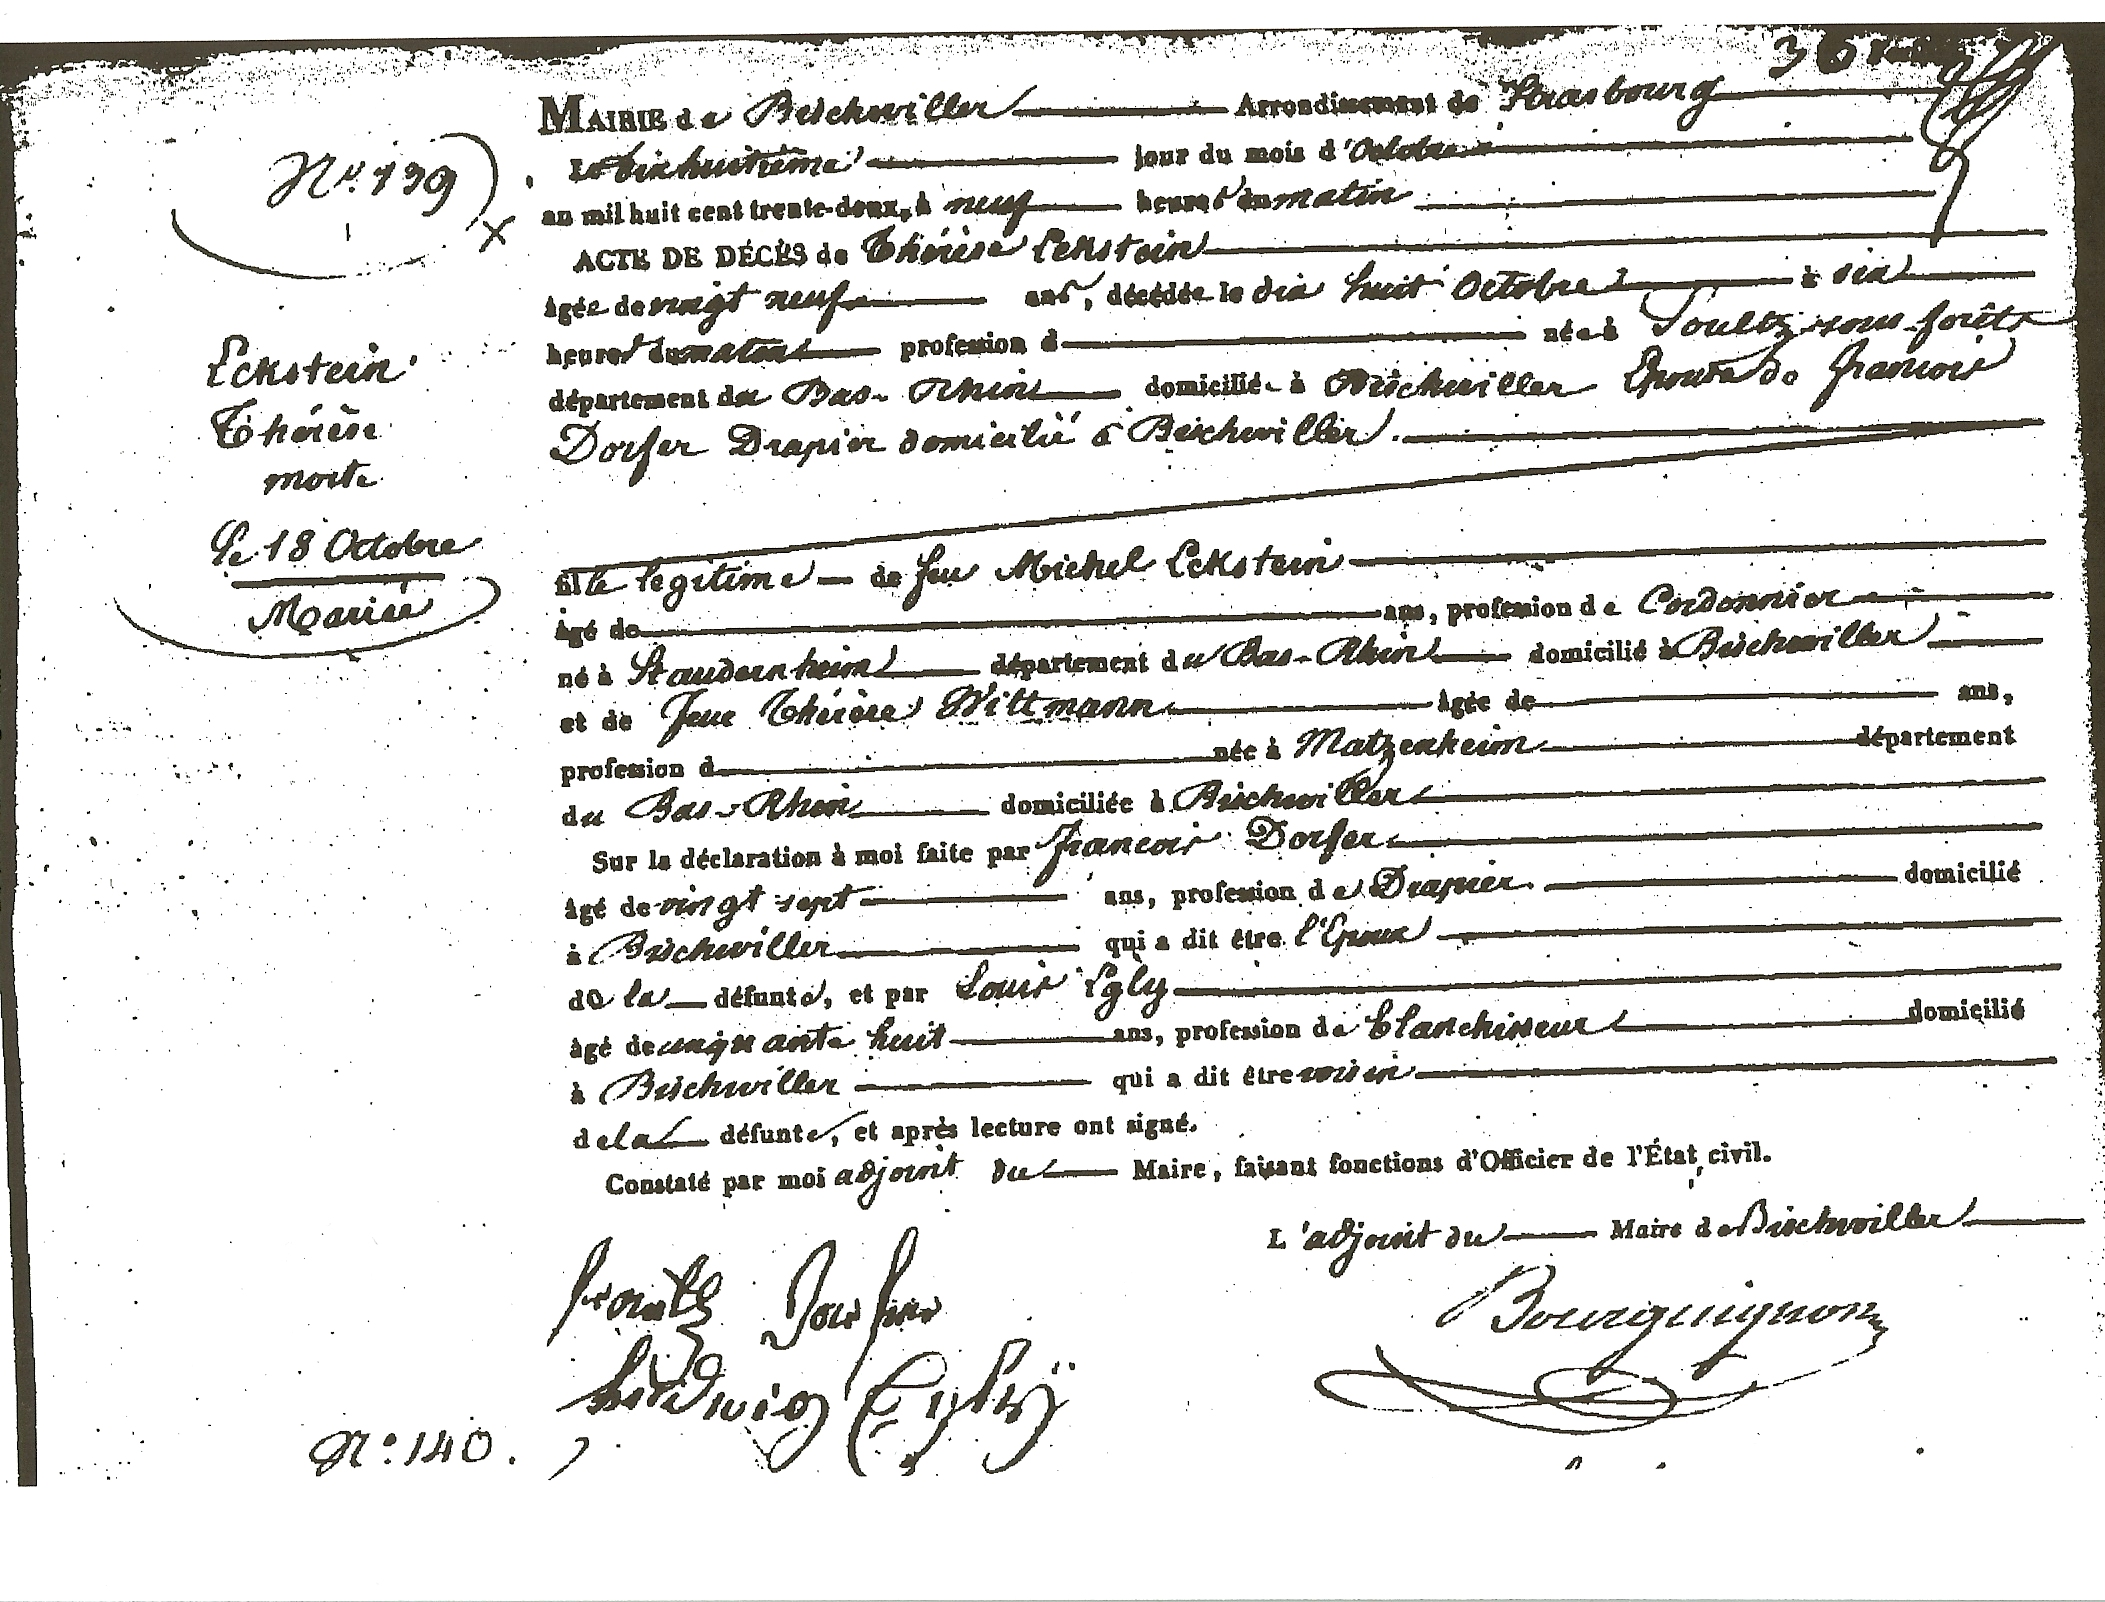 36
MAIRIE de Bischwiller Arrondissement de Strasbourg
Nº 139
Le dixhuitième jour du mois d'Octobre
an mil huit cent trente-deux, à neuf heures du matin
ACTE DE DÉCÈS de Thérèse Eckstein
âgée de vingt neuf ans, décédée le dix huit Octobre à six
heures du matin profession d née à Soultz sous forêts
département du Bas-Rhin domiciliée à Bischwiller Epouse de François
Dorfer Drapier domicilié à Bischwiller.
Eckstein
Thérèse
morte
le 18 Octobre
Mariée
fille légitime de feu Michel Eckstein
âgé de ans, profession de Cordonnier
né à Staudernheim département du Bas-Rhin domicilié à Bischwiller
et de feue Thérèse Wittmann âgée de ans,
profession d née à Matzenheim département
du Bas-Rhin domiciliée à Bischwiller
Sur la déclaration à moi faite par François Dorfer
âgé de vingt sept ans, profession de Drapier domicilié
à Bischwiller qui a dit être l'Epoux
de la défunte, et par Louis Egly
âgé de cinquante huit ans, profession de blanchisseur domicilié
à Bischwiller qui a dit être voisin
de la défunte, et après lecture ont signé.
Constaté par moi adjoint du Maire, faisant fonctions d'Officier de l'État civil.
L'adjoint du Maire de Bischwiller
Frantz Dorfer
Bourguignon
Ludwig Eglÿ
Nº 140.